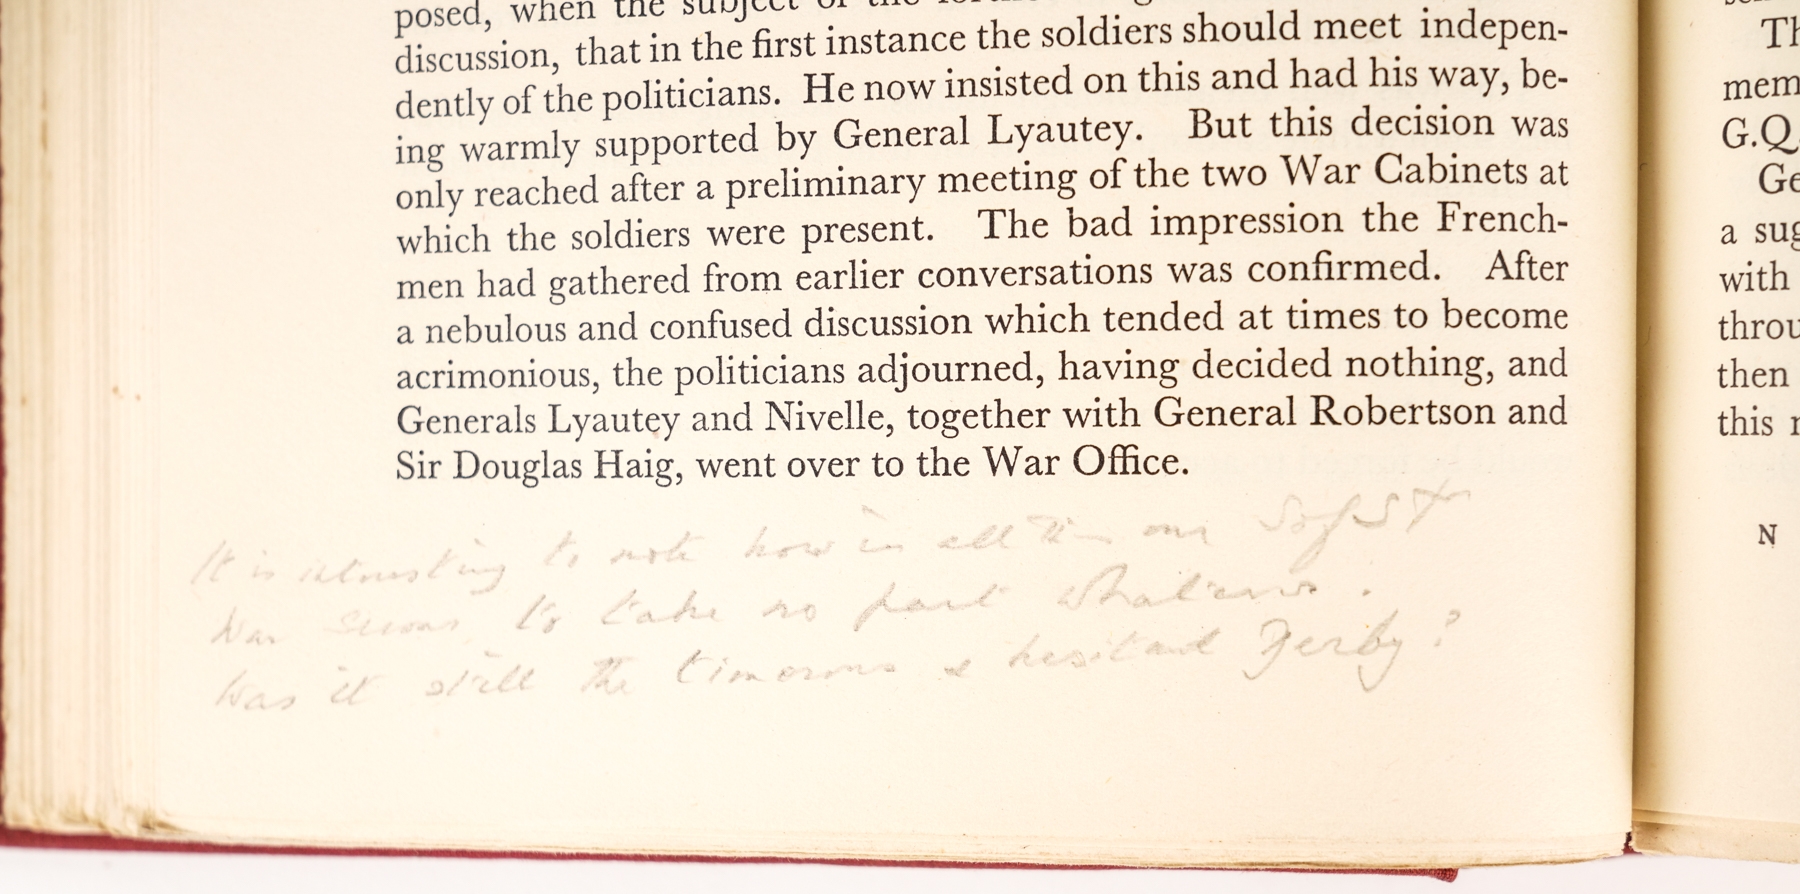 posed, when the subject of the
discussion, that in the first instance the soldiers should meet indepen-
dently of the politicians. He now insisted on this and had his way, be-
ing warmly supported by General Lyautey. But this decision was
only reached after a preliminary meeting of the two War Cabinets at
which the soldiers were present. The bad impression the French-
men had gathered from earlier conversations was confirmed. After
a nebulous and confused discussion which tended at times to become
acrimonious, the politicians adjourned, having decided nothing, and
Generals Lyautey and Nivelle, together with General Robertson and
Sir Douglas Haig, went over to the War Office.
It is interesting to note how in all this our S of S for
War seems to take no part whatever.
Was it still the timorous & hesitant Derby?
Th
mem
G.Q.
Ge
a sug
with
throu
then
this
N